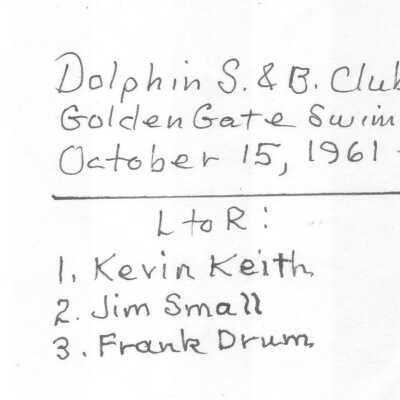 Dolphin S. & B. Club
Golden Gate Swim
October 15, 1961 -
L to R:
1. Kevin Keith
2. Jim Small
3. Frank Drum